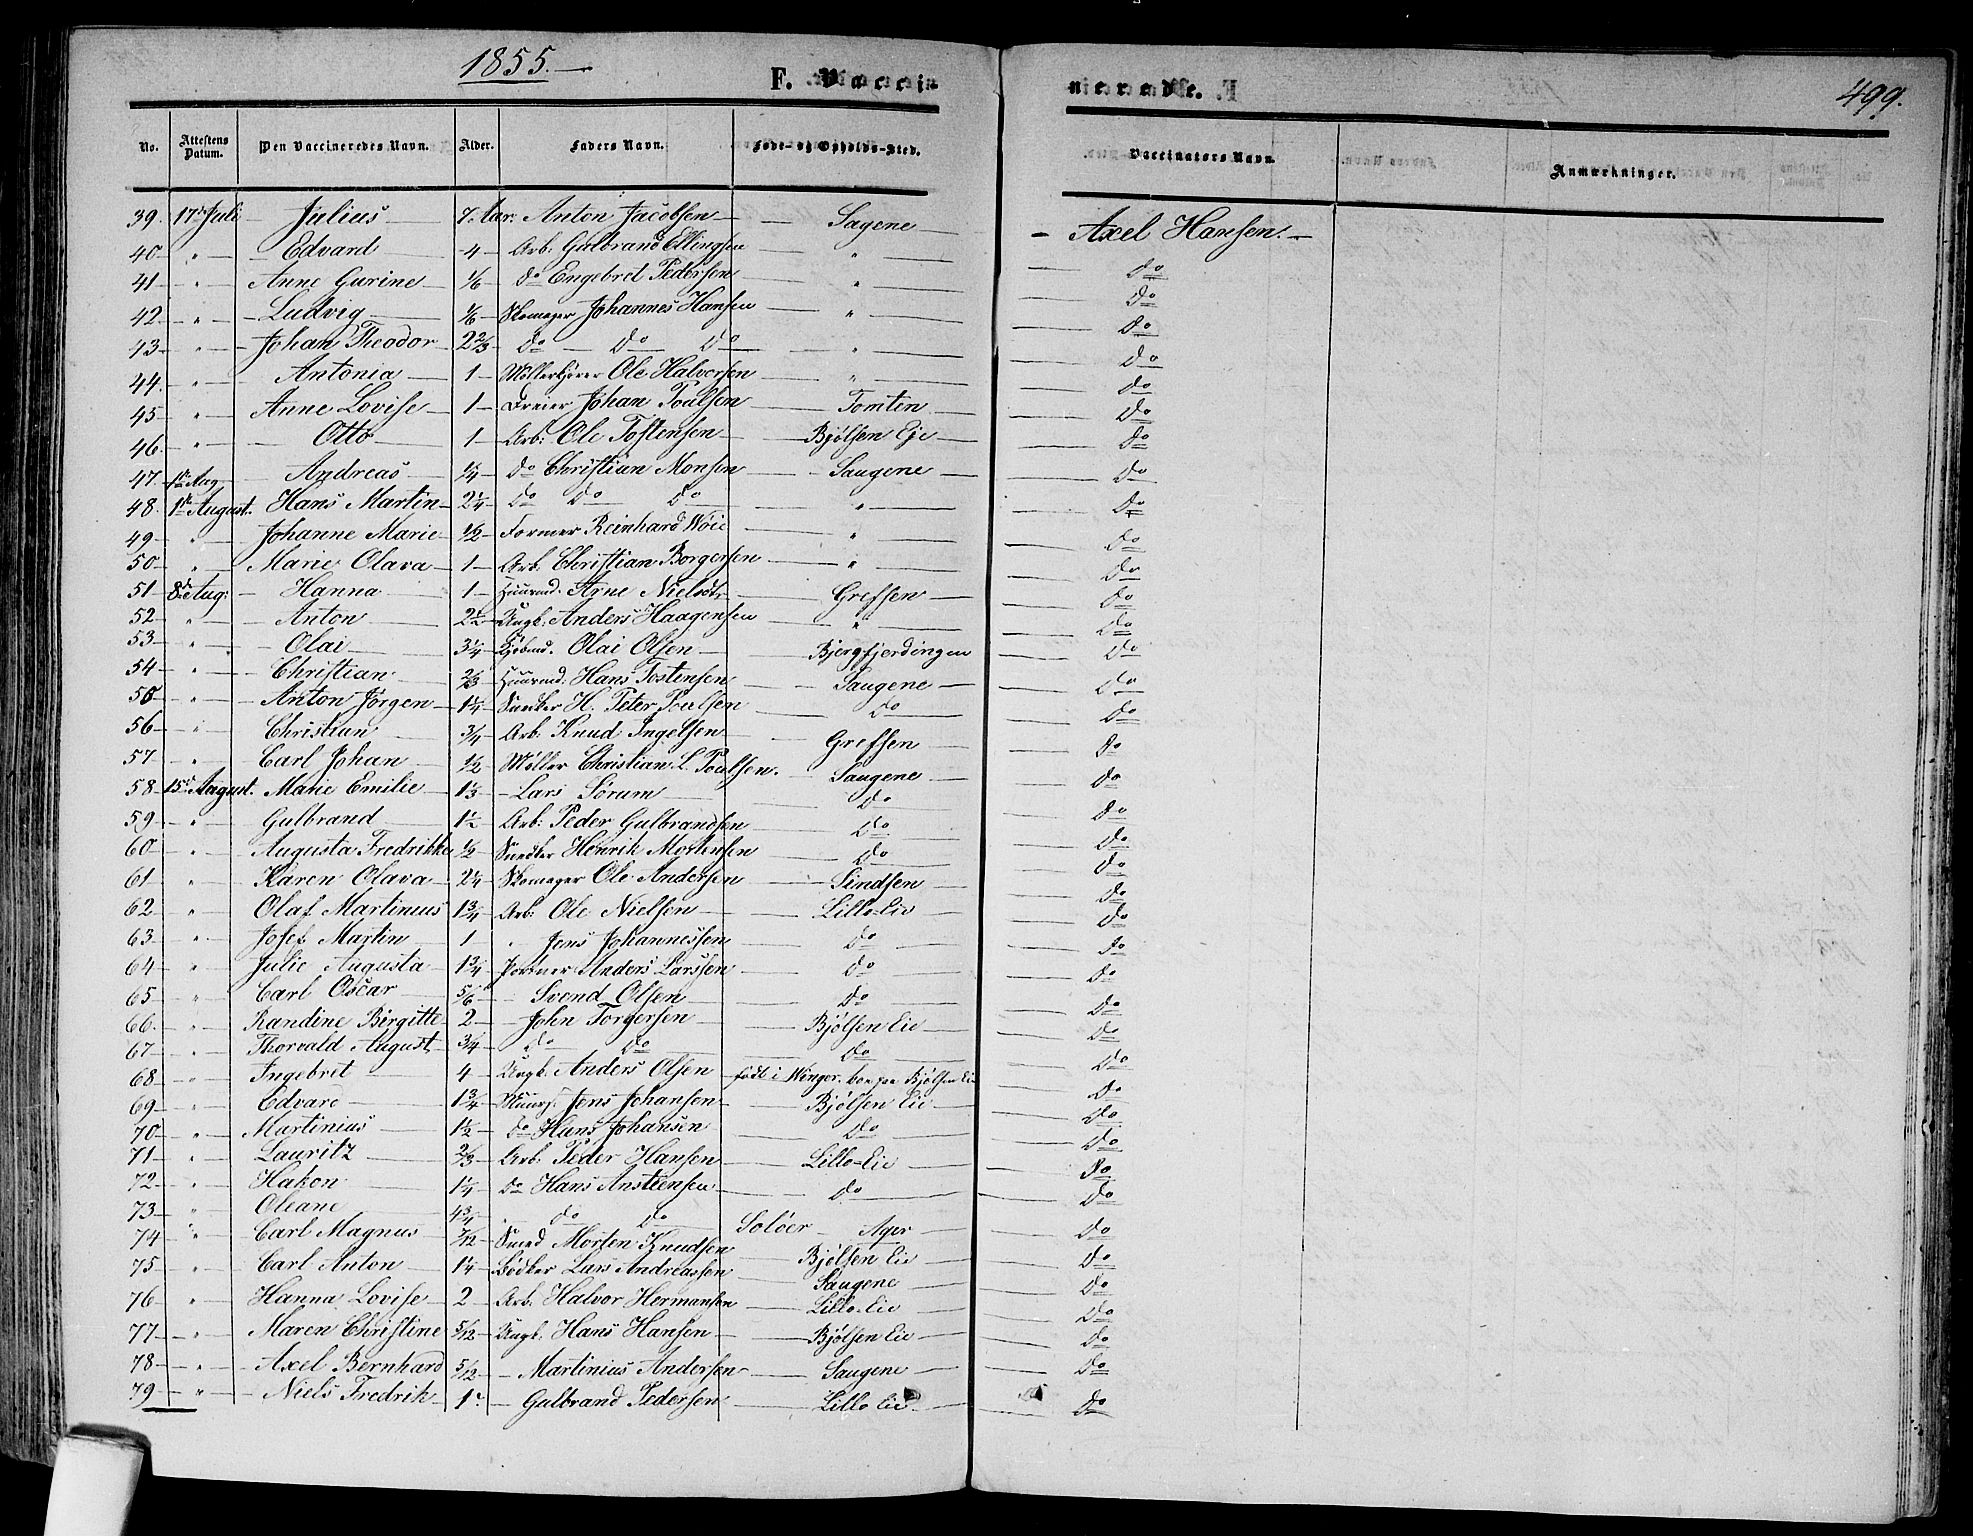 1855.
F. Vaccin
nerede.
499.
No. Attestens Datum. Den Vaccineredes Navn. Alder. Faders Navn. Føde- og Opholds-Sted. Vaccinateurs Navn. Anmærkninger.
39. 17 Juli Julius 7 Aar. Anton Jacobsen Sagene Axel Hansen.
40 " Edvard 4 Arb: Gulbrand Ellingsen " Do
41 " Anne Gurine 1/6 do Engebret Pedersen " Do
42 " Ludvig 1/6 Skomager Johannes Hansen " Do
43 " Johan Theodor 2 2/3 Do Do Do " Do
44. " Antonia 1 Møllerkjører Ole Halvorsen " Do
45 " Anne Lovise 1 Dreier Johan Poulsen Tomten Do
46 " Otto 1 Arb: Ole Tostensen Bjølsen Eje Do
47. 1ste Aug Andreas 1/4 do Christian Monsen Saugene Do
48. 1ste August. Hans Martin 2 1/4 Do Do Do " Do
49 " Johanne Marie 1/2 Former Reinhard Wøie " Do
50 " Marie Olava 1 Arb. Christian Borgersen " Do
51 8de Aug: Hanna 1 Huusmd. Arne Nielsøn Greffen Do
52 " Anton 2 1/2 Ungk: Anders Haagensen " Do
53 " Olai 3 1/4 Kjøbmd. Olai Olsen Bjergfjerdingen Do
54 " Christian 2/3 Huusmd: Hans Tostensen Saugene Do
55 " Anton Jørgen 1 1/4 Snedker H. Peter Poulsen Do Do
56 " Christian 3/4 Arb. Knud Ingelsen Greffen Do
57 " Carl Johan 1/2 Møller Christian L. Poulsen. Saugene Do
58 15de August. Marie Emilie 1 1/3 Lars Sørum Do Do
59 " Gulbrand 1 1/2 Arb: Peder Gulbrandsen Do Do
60 " Augusta Fredrikke 1/2 Snedker Henrik Mortensen Do Do
61 " Karen Olava 2 1/4 Skomager Ole Andersen Sindsen Do
62 " Olaf Martinius 1 3/4 Arb: Ole Nielsen Lillo-Eie Do
63 " Josef Martin 1 " Jens Johannessen Do Do
64 " Julie Augusta 1 3/4 Former Anders Larssen Do Do
65 " Carl Oscar 5/6 Svend Olsen Do Do
66. " Randine Birgitte 2 John Torgersen Bjølsen Eie Do
67 " Thorvald August 3/4 Do Do Do Do
68 " Ingebret 4 Ungk. Anders Olsen født i Winger. boe paa Bjølsen Eie Do
69 " Edvard 1 3/4 Muurs. Jens Johansen Bjølsen Eie Do
70 " Martinius 1 1/2 do Hans Johansen Do Do
71 " Lauritz 2/3 Arb. Peder Hansen Lillo-Eie Do
72 " Hakon 1 1/4 Do Hans Ansteensen Do Do
73 " Oleane 4 3/4 Do Do Soløer Ager Do
74 " Carl Magnus 7/12 Smed Morten Knudsen Bjølsen Eie Do
75 " Carl Anton 1 1/4 Bødker Lars Andreassen Saugene Do
76 " Hanna Lovise 2 Arb. Halvor Hermansen Lillo-Eie Do
77 " Maren Christine 5/12 Ungk. Hans Hansen Bjølsen Eie Do
78 " Axel Bernhard 5/12 Martinius Andersen Saugene Do
79 " Niels Fredrik 1 Gulbrand Pedersen Lillo Eie. Do